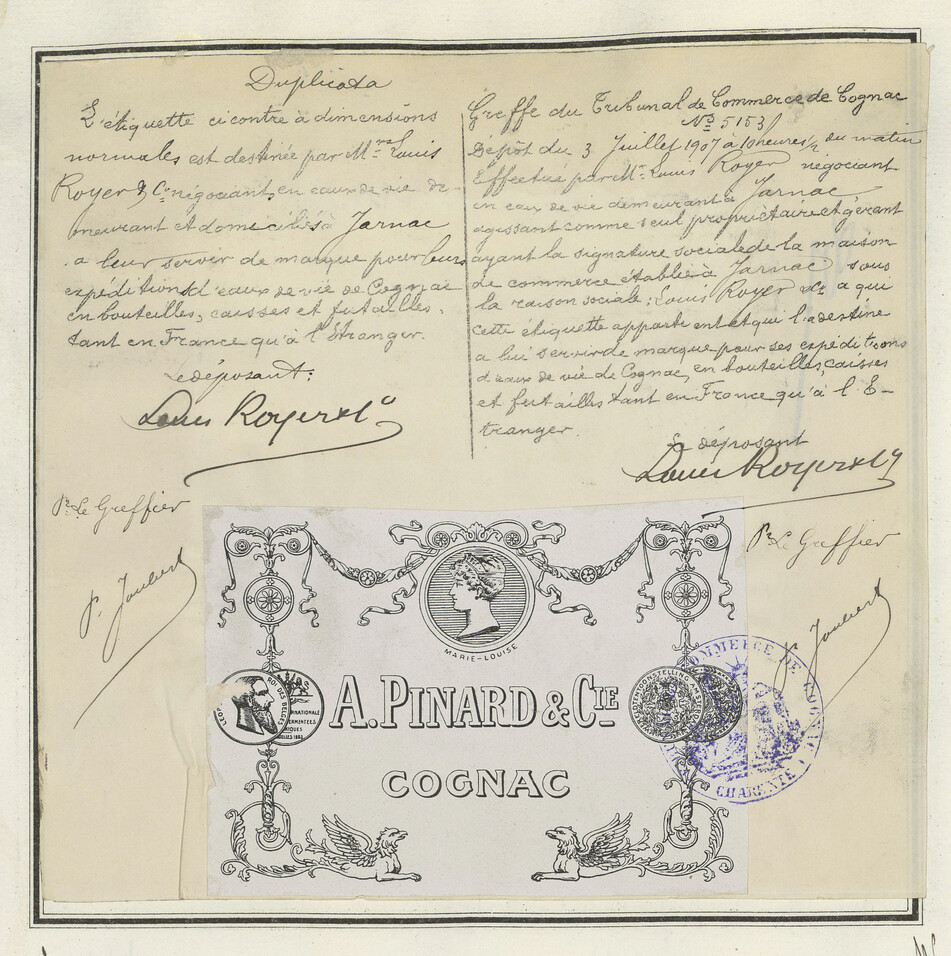 Duplicata
L'étiquette ci contre à dimensions
normales est destinée par Mrs Louis
Royer & Co négociant, en eaux de vie de-
meurant et domiciliés à Jarnac
a leur servir de marque pour leurs
expéditions d'eaux de vie de Cognac
en bouteilles, caisses et futailles,
tant en France qu'à l'Etranger.
Le déposant:
Louis Royer & Co
Pr Le Greffier
P. Joubert
Greffe du Tribunal de Commerce de Cognac
No 5153
Depôt du 3 Juillet 1907 à 10 heures 1/2 du matin
Effectué par Mr Louis Royer négociant
en eaux de vie demeurant à Jarnac
agissant comme seul propriètaire et gérant
ayant la signature sociale de la maison
de commerce établie à Jarnac sous
la raison sociale: Louis Royer & Co a qui
cette étiquette appartient et qui l'a destine
a lui servir de marque pour ses expeditions
d'eaux de vie de Cognac, en bouteilles, caisses
et futailles tant en France qu'à l'E-
tranger.
Le déposant
Louis Royer & Co
Pr Le Greffier
P. Joubert
MARIE-LOUISE
LEOP ROI DES BELGES
A. PINARD & CIE
COGNAC
COMMERCE DE COGNAC
CHARENTE